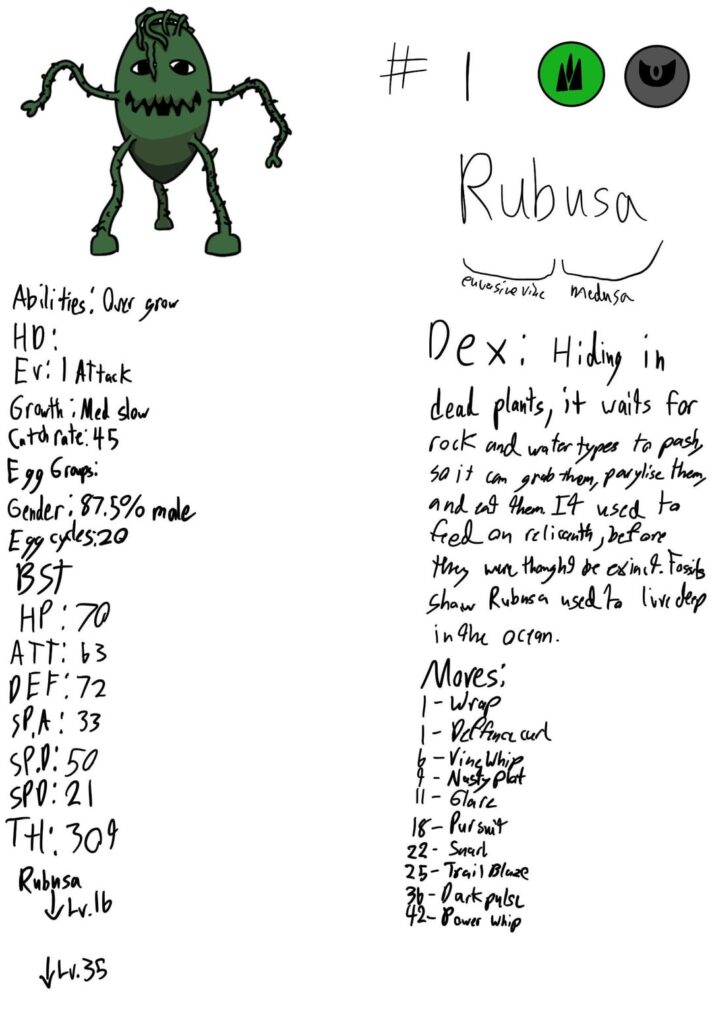 # 1
Rubusa
medusa
Abilities: Over grow
HD:
Ev: 1 Attack
Growth: Med slow
Catch rate: 45
Egg Groups:
Gender: 87.5% male
Egg cycles: 20
BST
HP: 70
ATT: 63
DEF: 72
SP.A: 33
SP.D: 50
SPD: 21
TH: 309
Rubusa
↓Lv.16
↓Lv.35
Dex: Hiding in
dead plants, it waits for
rock and water types to pash,
so it can grab them, parylise them,
and eat them It used to
feed on relicanth, before
they were thought be exinct. Fossils
show Rubusa used to live deep
in the ocean.
Moves:
1 - Wrap
1 - curl
6 - Vine Whip
9 - Nasty Plot
11 - Glare
18 - Pursuit
22 - Snarl
25 - Trail Blaze
36 - Dark pulse
42 - Power whip